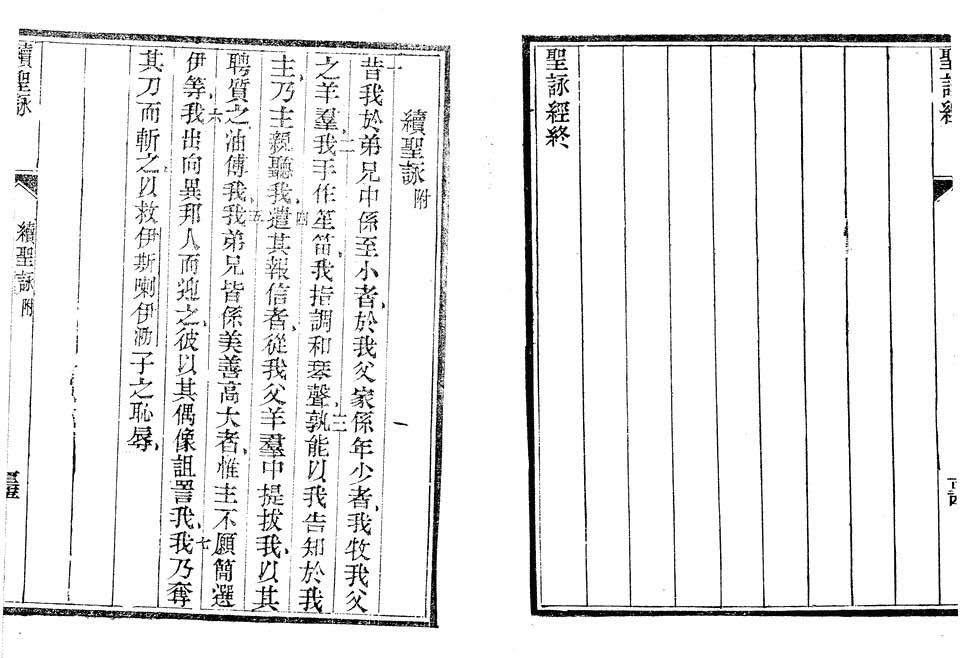 聖詠經終
續聖詠附
一昔我於弟兄中係至小者、於我父家係年少者、我牧我父
之羊羣、二我手作笙笛、我指調和琴聲、三孰能以我告知於我
主、乃主親聽我、四遣其報信者、從我父羊羣中提拔我、以其
聘質之油傅我、五我弟兄皆係美善高大者、惟主不願簡選
伊等、六我出向異邦人而迎之、彼以其偶像詛詈我、七我乃奪
其刀而斬之以救伊斯喇伊泐子之恥辱、
續聖詠
續聖詠附
一